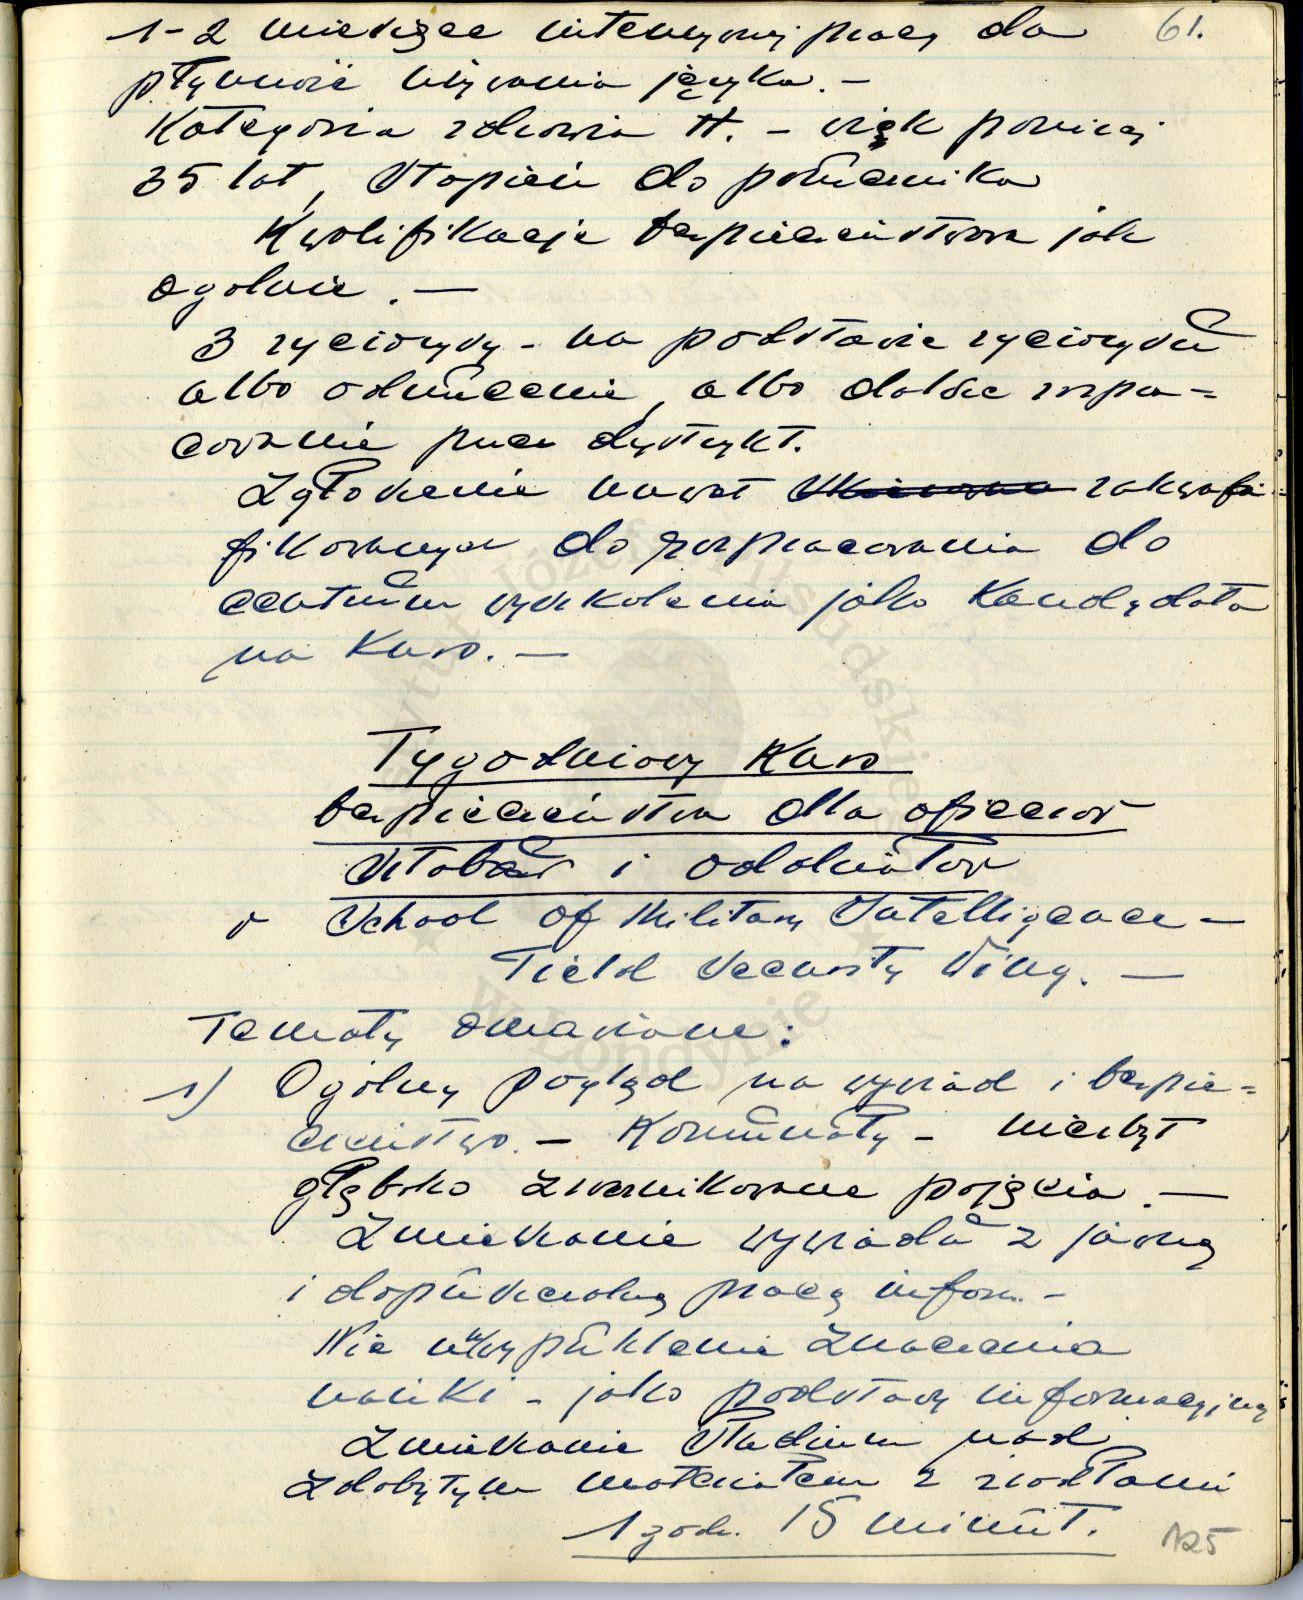 1-2 miesięce intensywnej pracy do 61.
płynności używania języka. —
Kategoria zdrowia A. - wiek poniżej
35 lat, stopień do porucznika
Kwalifikacje bezpieczeństwa jak
ogólnie. —
3 życiorysy - na podstawie życiorysów
albo odrzucenie, albo dalsze rozpra=
cowanie przez dystrykt.
Zgłoszenie nazwisk zakwali=
fikowanych do rozpracowania do
centrum wyszkolenia jako kandydata
na kurs. —
Tygodniowy Kurs
bezpieczeństwa dla oficerów
sztabów i oddziałów
w School of Military Intelligence —
Field Security Wing. —
Tematy omawiane:
1) Ogólny pogląd na wywiad i bezpie=
czeństwo. — Komunały — niezbyt
głęboko zwarnikowane pojęcia. —
Zmieszanie wywiadu z jawną
i dopuszczalną pracą inform. -
Nie uwypuklenie znaczenia
nauki - jako podstawy informacyjnej
Zmieszanie stadium nad
zdobytym materiałem z źródłami
1 godz. 15 minut.
125